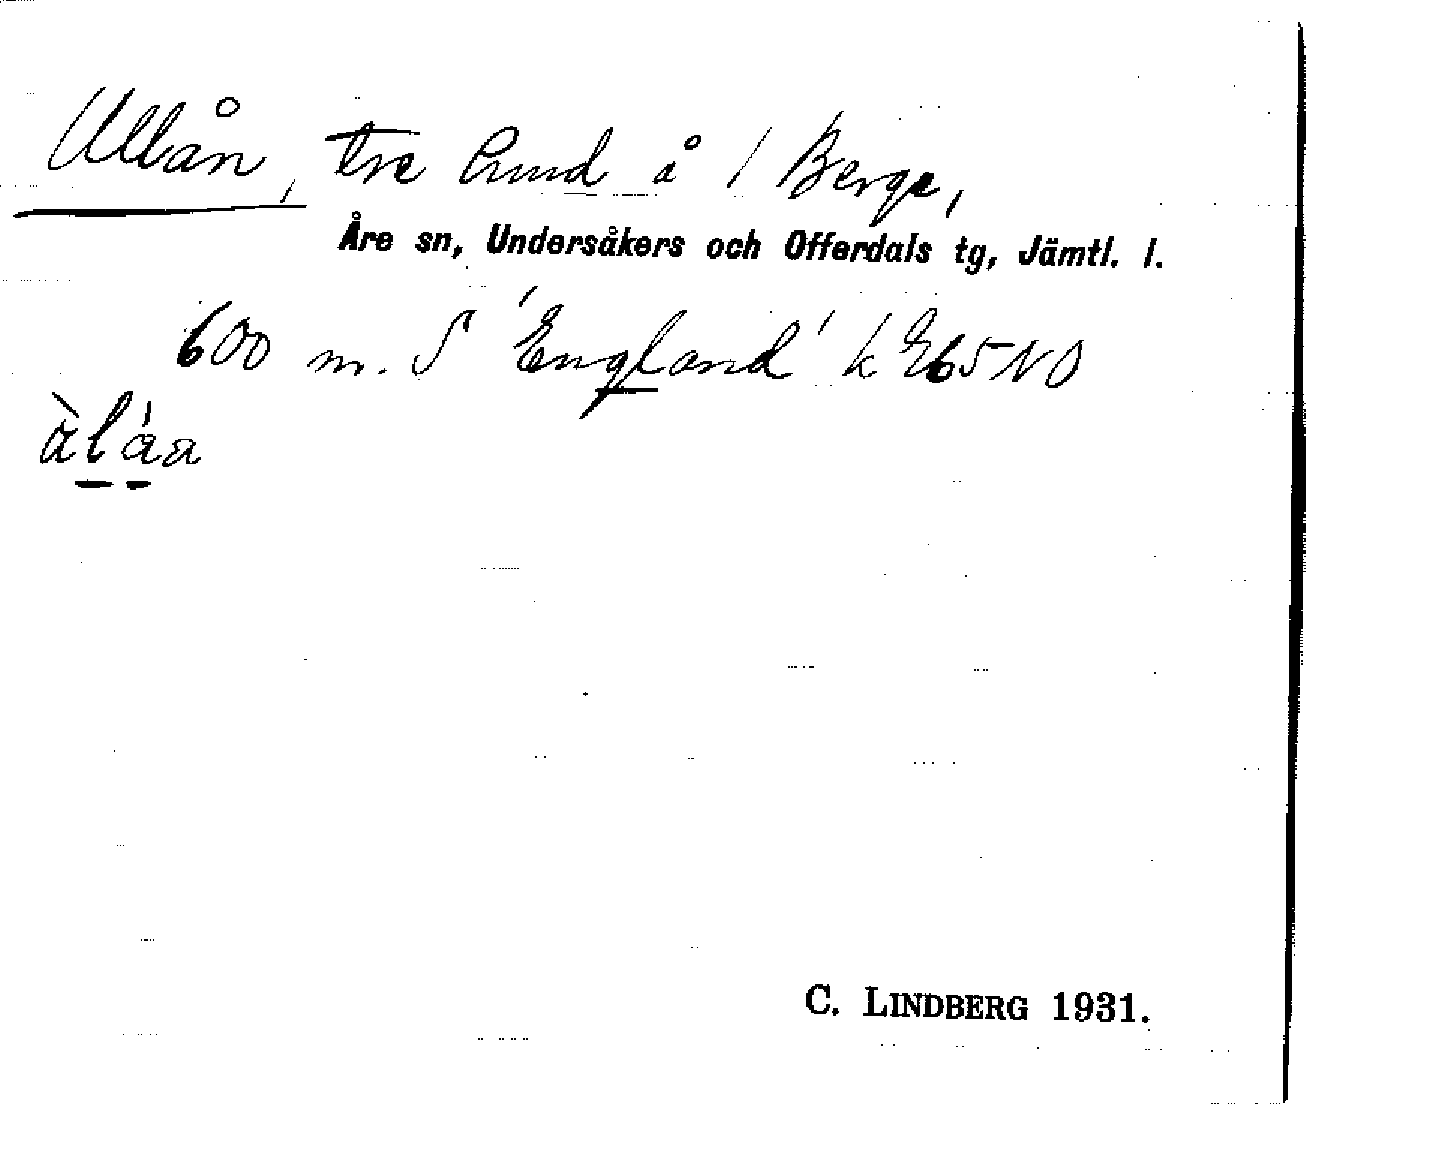 Ullån, tre Lund å / Berge,
Åre sn, Undersåkers och Offerdals tg, Jämtl. l.
600 m. S 'England' k E65NO
àláa
C. LINDBERG 1931.